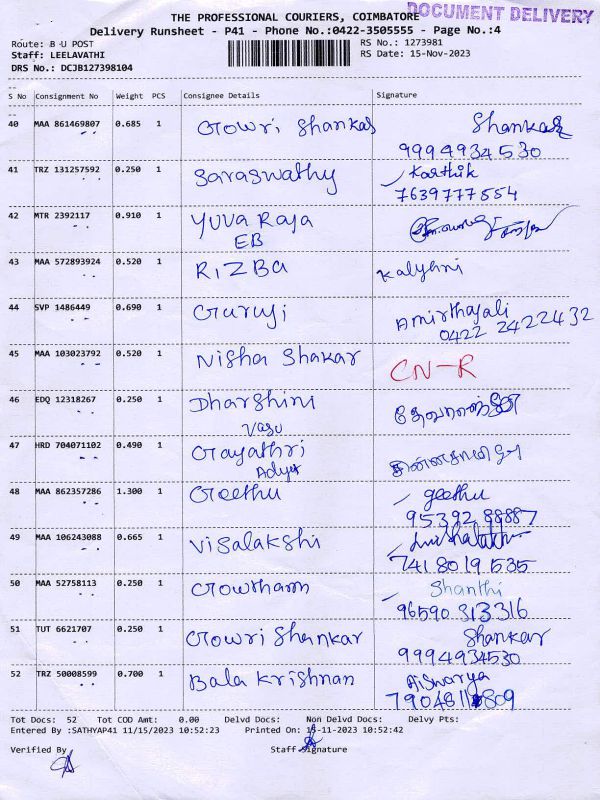 THE PROFESSIONAL COURIERS, COIMBATORE
DOCUMENT DELIVERY
Delivery Runsheet - P41 - Phone No.:0422-3505555 - Page No.:4
Route: B U POST
RS No.: 1273981
Staff: LEELAVATHI
RS Date: 15-Nov-2023
DRS No.: DCJB127398104
S No Consignment No Weight PCS Consignee Details Signature
40 MAA 861469807 0.685 1 Gowri Shankar Shankar
9994934530
41 TRZ 131257592 0.250 1 Saraswathy Karthik
7639777554
42 MTR 2392117 0.910 1 YUVA RAJA
EB
43 MAA 572893924 0.520 1 RIZBA Kalyhni
44 SVP 1486449 0.690 1 Guruji Amirthajali
0422 2422432
45 MAA 103023792 0.520 1 Nisha Shakar CN-R
46 EDQ 12318267 0.250 1 Dharshini
Vasu
47 HRD 704071102 0.490 1 Gayathri
Adya
48 MAA 862357286 1.300 1 Geethu geethu
95392 88887
49 MAA 106243088 0.665 1 Visalakshi
7418019535
50 MAA 52758113 0.250 1 Gowtham Shanthi
96590 313316
51 TUT 6621707 0.250 1 Gowri Shankar Shankar
9994934530
52 TRZ 50008599 0.700 1 Bala Krishnan Aiswarya
7904811809
Tot Docs: 52 Tot COD Amt: 0.00 Delvd Docs: Non Delvd Docs: Delvy Pts:
Entered By :SATHYAP41 11/15/2023 10:52:23 Printed On: 15-11-2023 10:52:42
Verified By Staff Signature